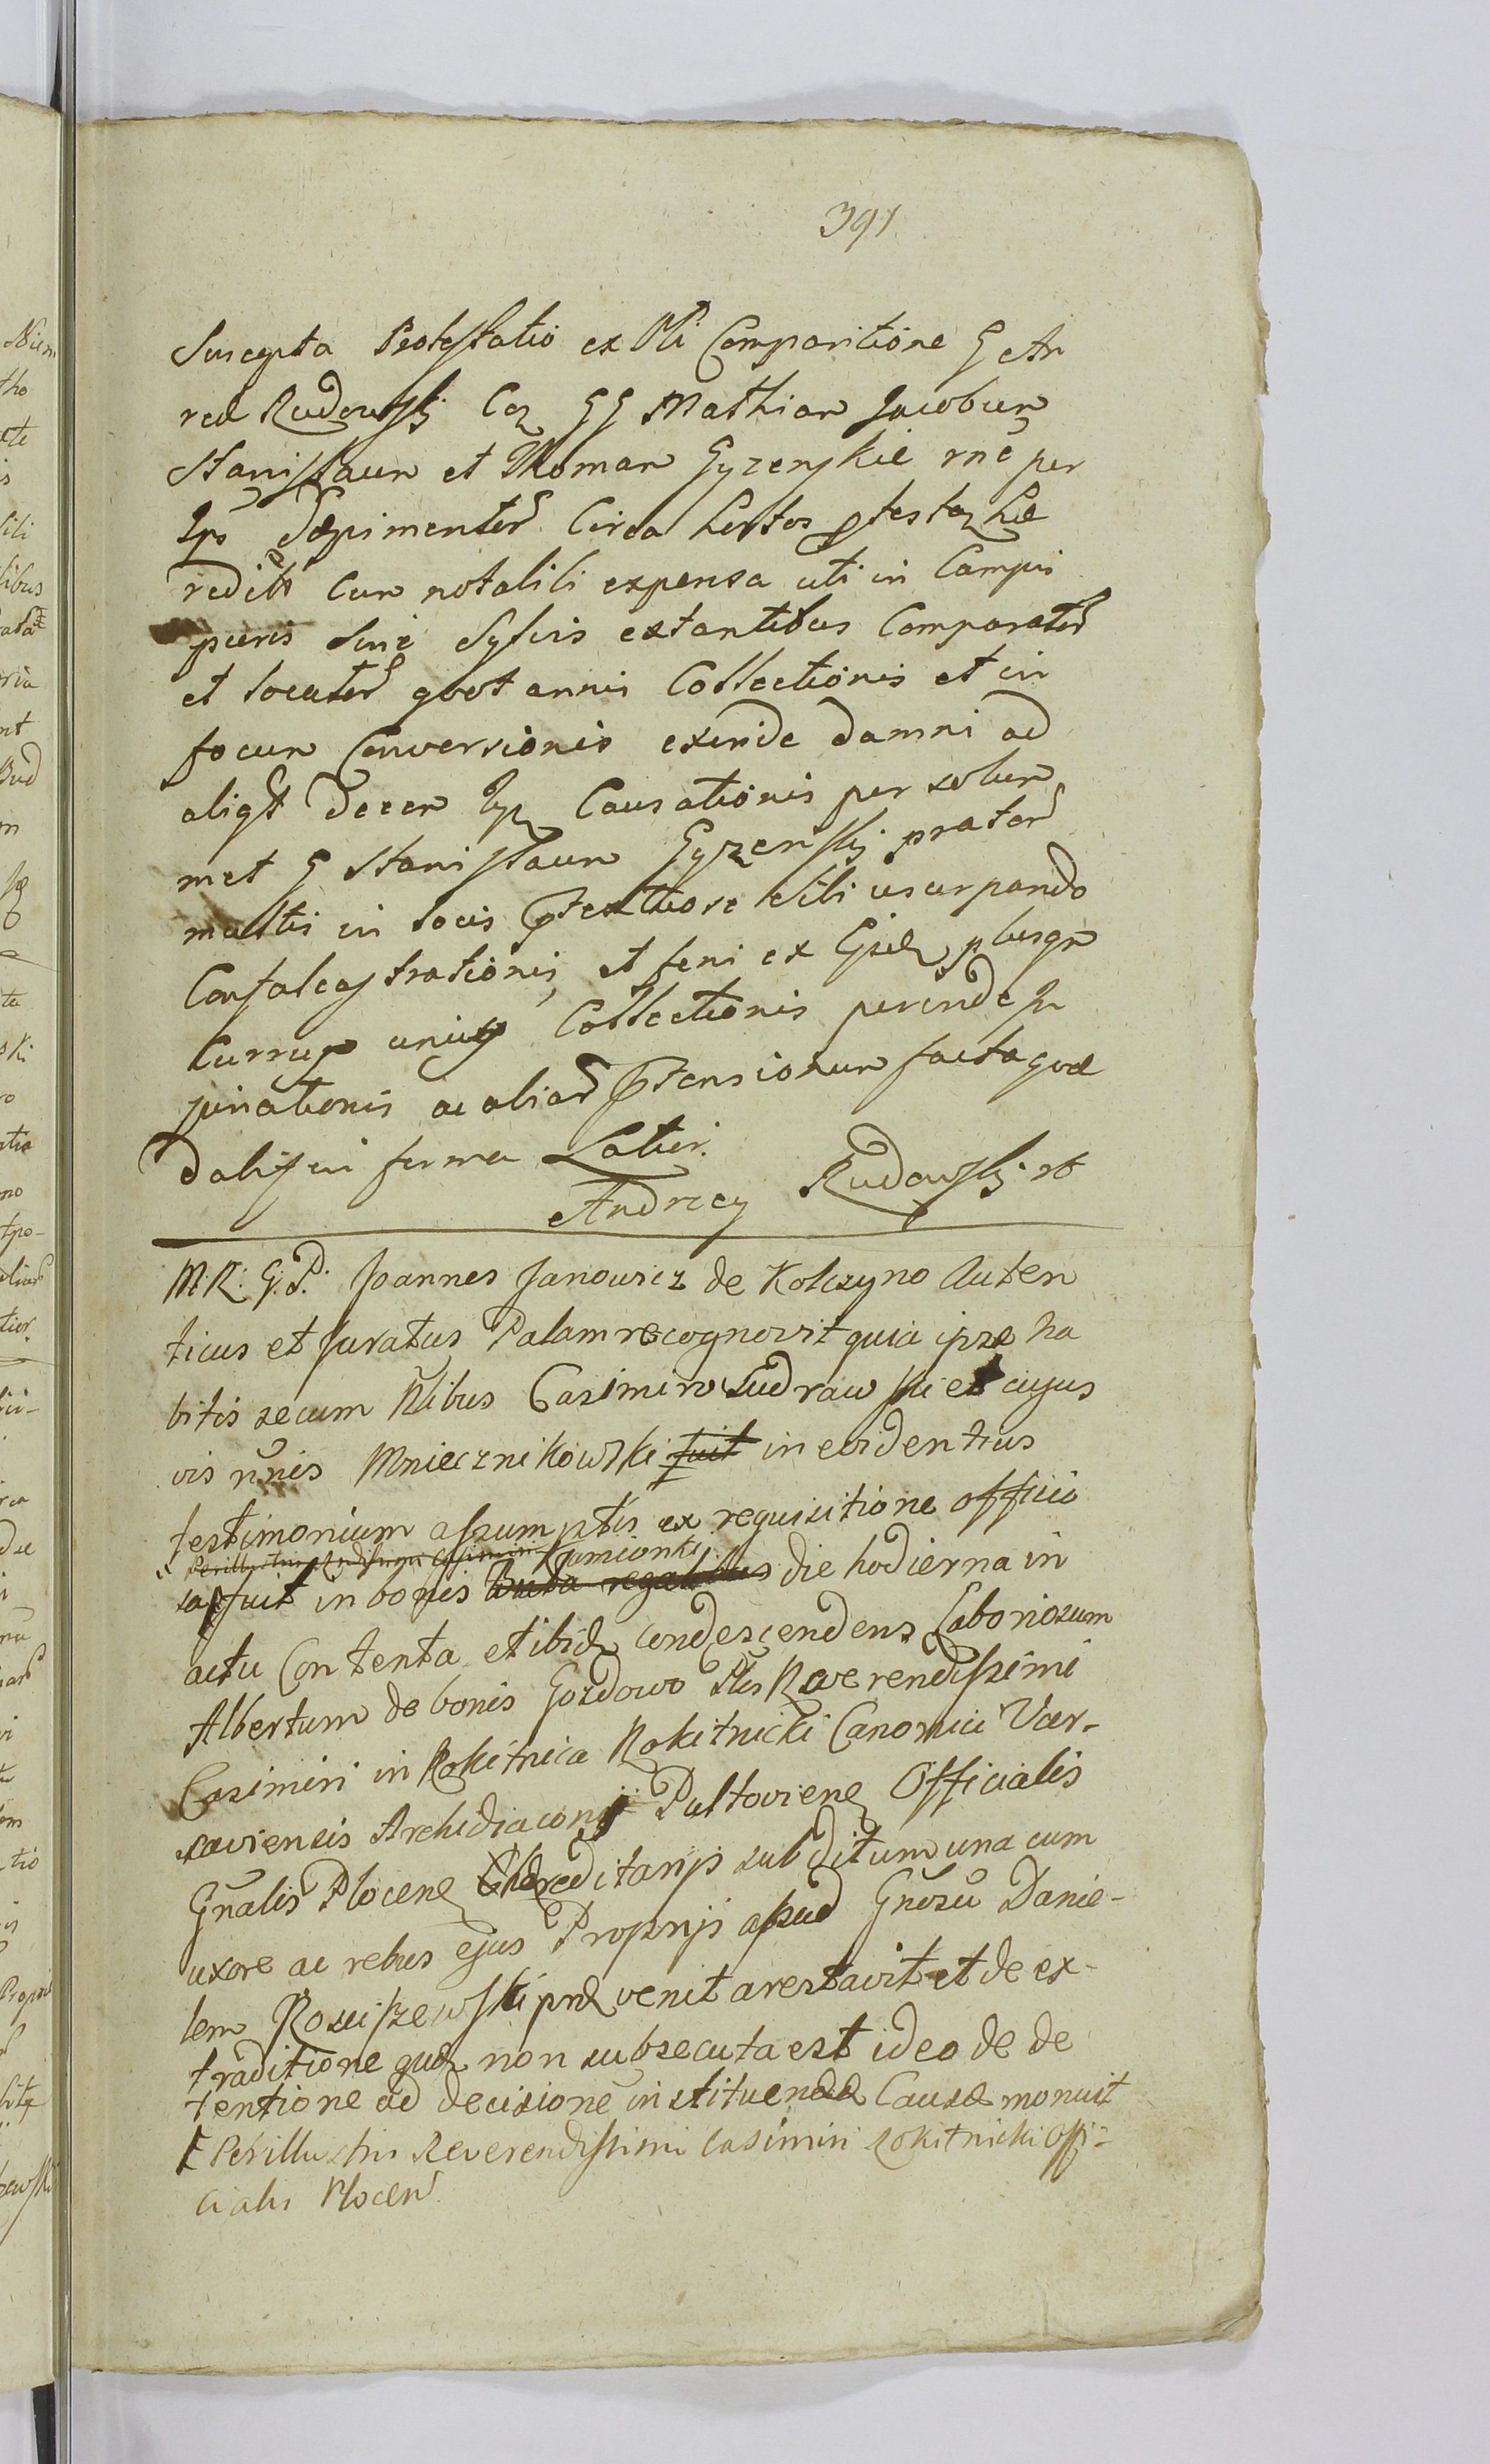 391
Suscepta Protestatio ex Pli Comparitione G An
reæ Rudowskj Coz GG Mathiam Jacobum
Stanisłaum et Thomam Gyzenskie rne per
Ips Sæpimentor Circa hortos ptestaz Hæ
redit Cum notabili expensa uti in Campis
puris sine Sylvis extantibus Comparator
et locator qvot annis Collectionis et in
focum Conversionis exinde damni ad
aliqt decem Collectionis Causationis per solum
met G Stanisłaum Gyzenskj prator
multis in locis ptextuose sibi usurpando
Confalcastrationis, et feni ex Eisd plusqm
Curruy unius Collectionis perinde
ac aliar ptensionum facta qvæ
in forma Latiori.
Andrzey Rudowskj
M: R: G: P: Joannes Janowicz de Kolczyno Auten
ticus et Juratus Palam recognovit quia ipse ha
bitis secum Nlibus Casimiro Sudrawski et cujus
vis nnis Mniecznikowski fuit in evidentius
testimonium assumptis ex requisitione officio
Kamionki
sa fuit in bonis die hodierna in
actu Contenta et ibid condescendens Laboriosum
Albertum de bonis Gozdowo Plis Reverendissimi
Casimiri in Rokitnica Rokitnicki Canonici Var-
saviensis Archidiaconi Pultovien Officialis
Gnalis Plocen Hæreditarys subditum una cum
uxore ac rebus ejus Proprys apud Gnosu Danie-
lem Rosciszewski prd venit arestavit et de ex-
traditione quæ non subsecuta est ideo de de
tentione ad decisione instituendæ Causæ monuit
Perillustris Reverendissimi Casimiri Rokitnicki offi-
cialis Plocen